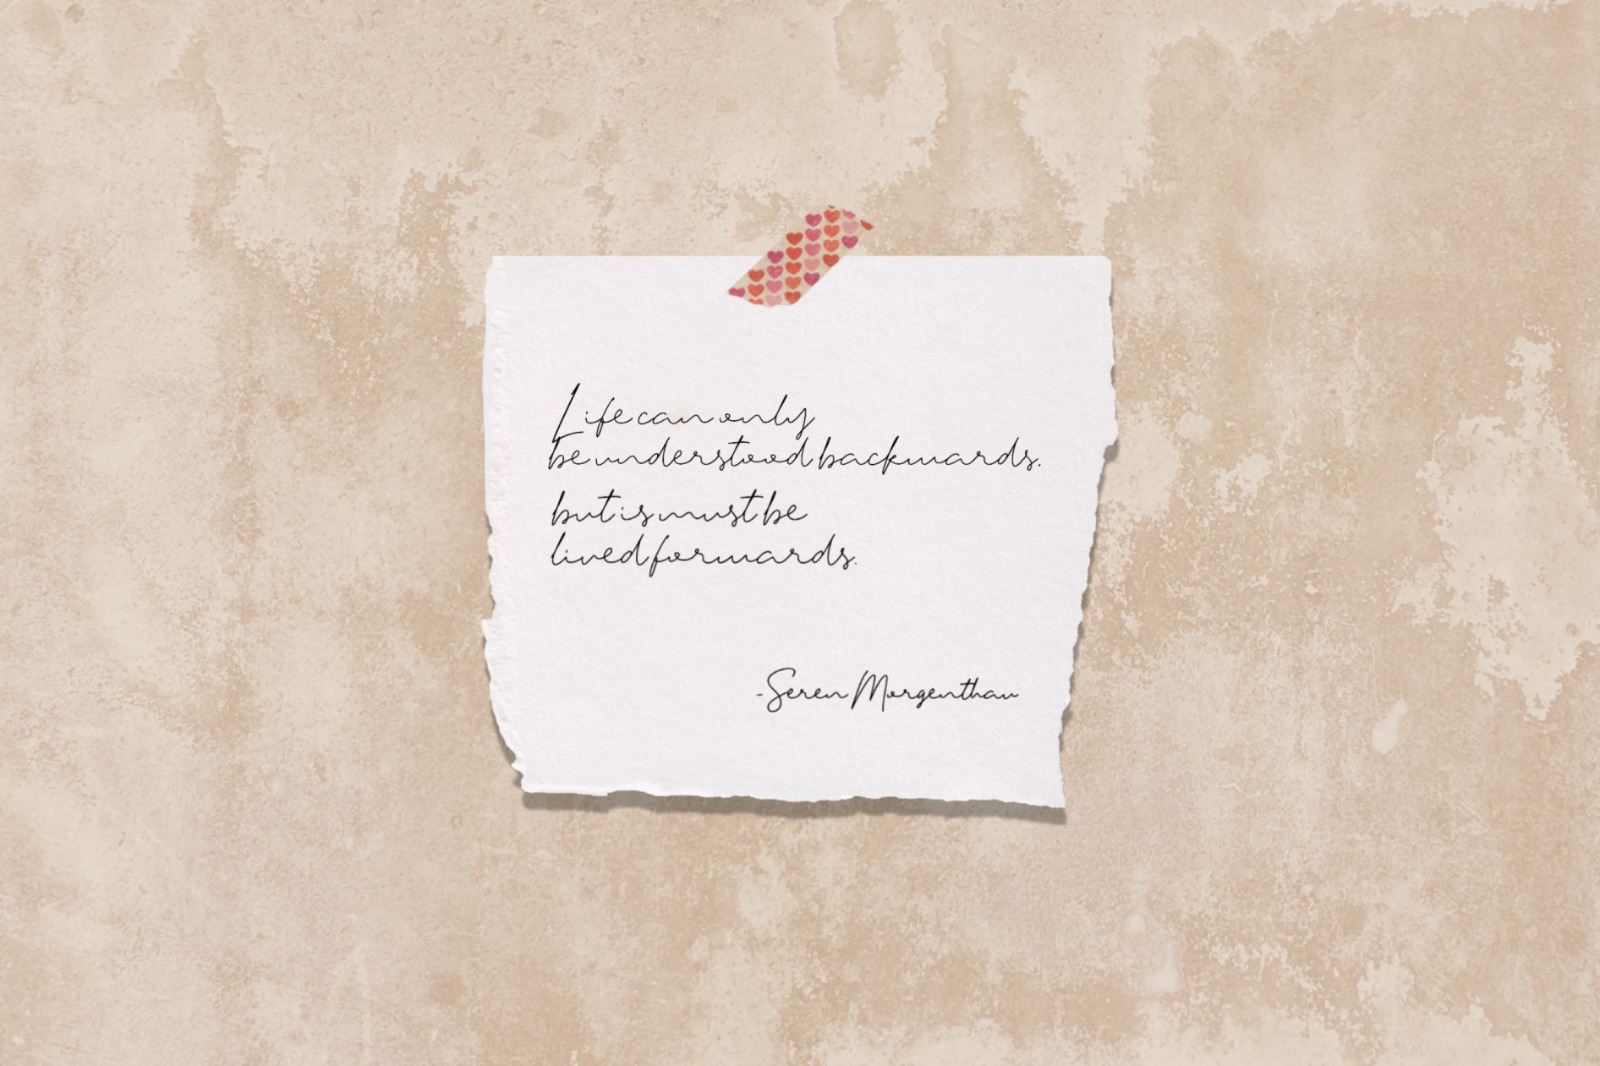 Life can only
be understood backwards.
but is must be
lived forwards.
-Seren Morgenthau